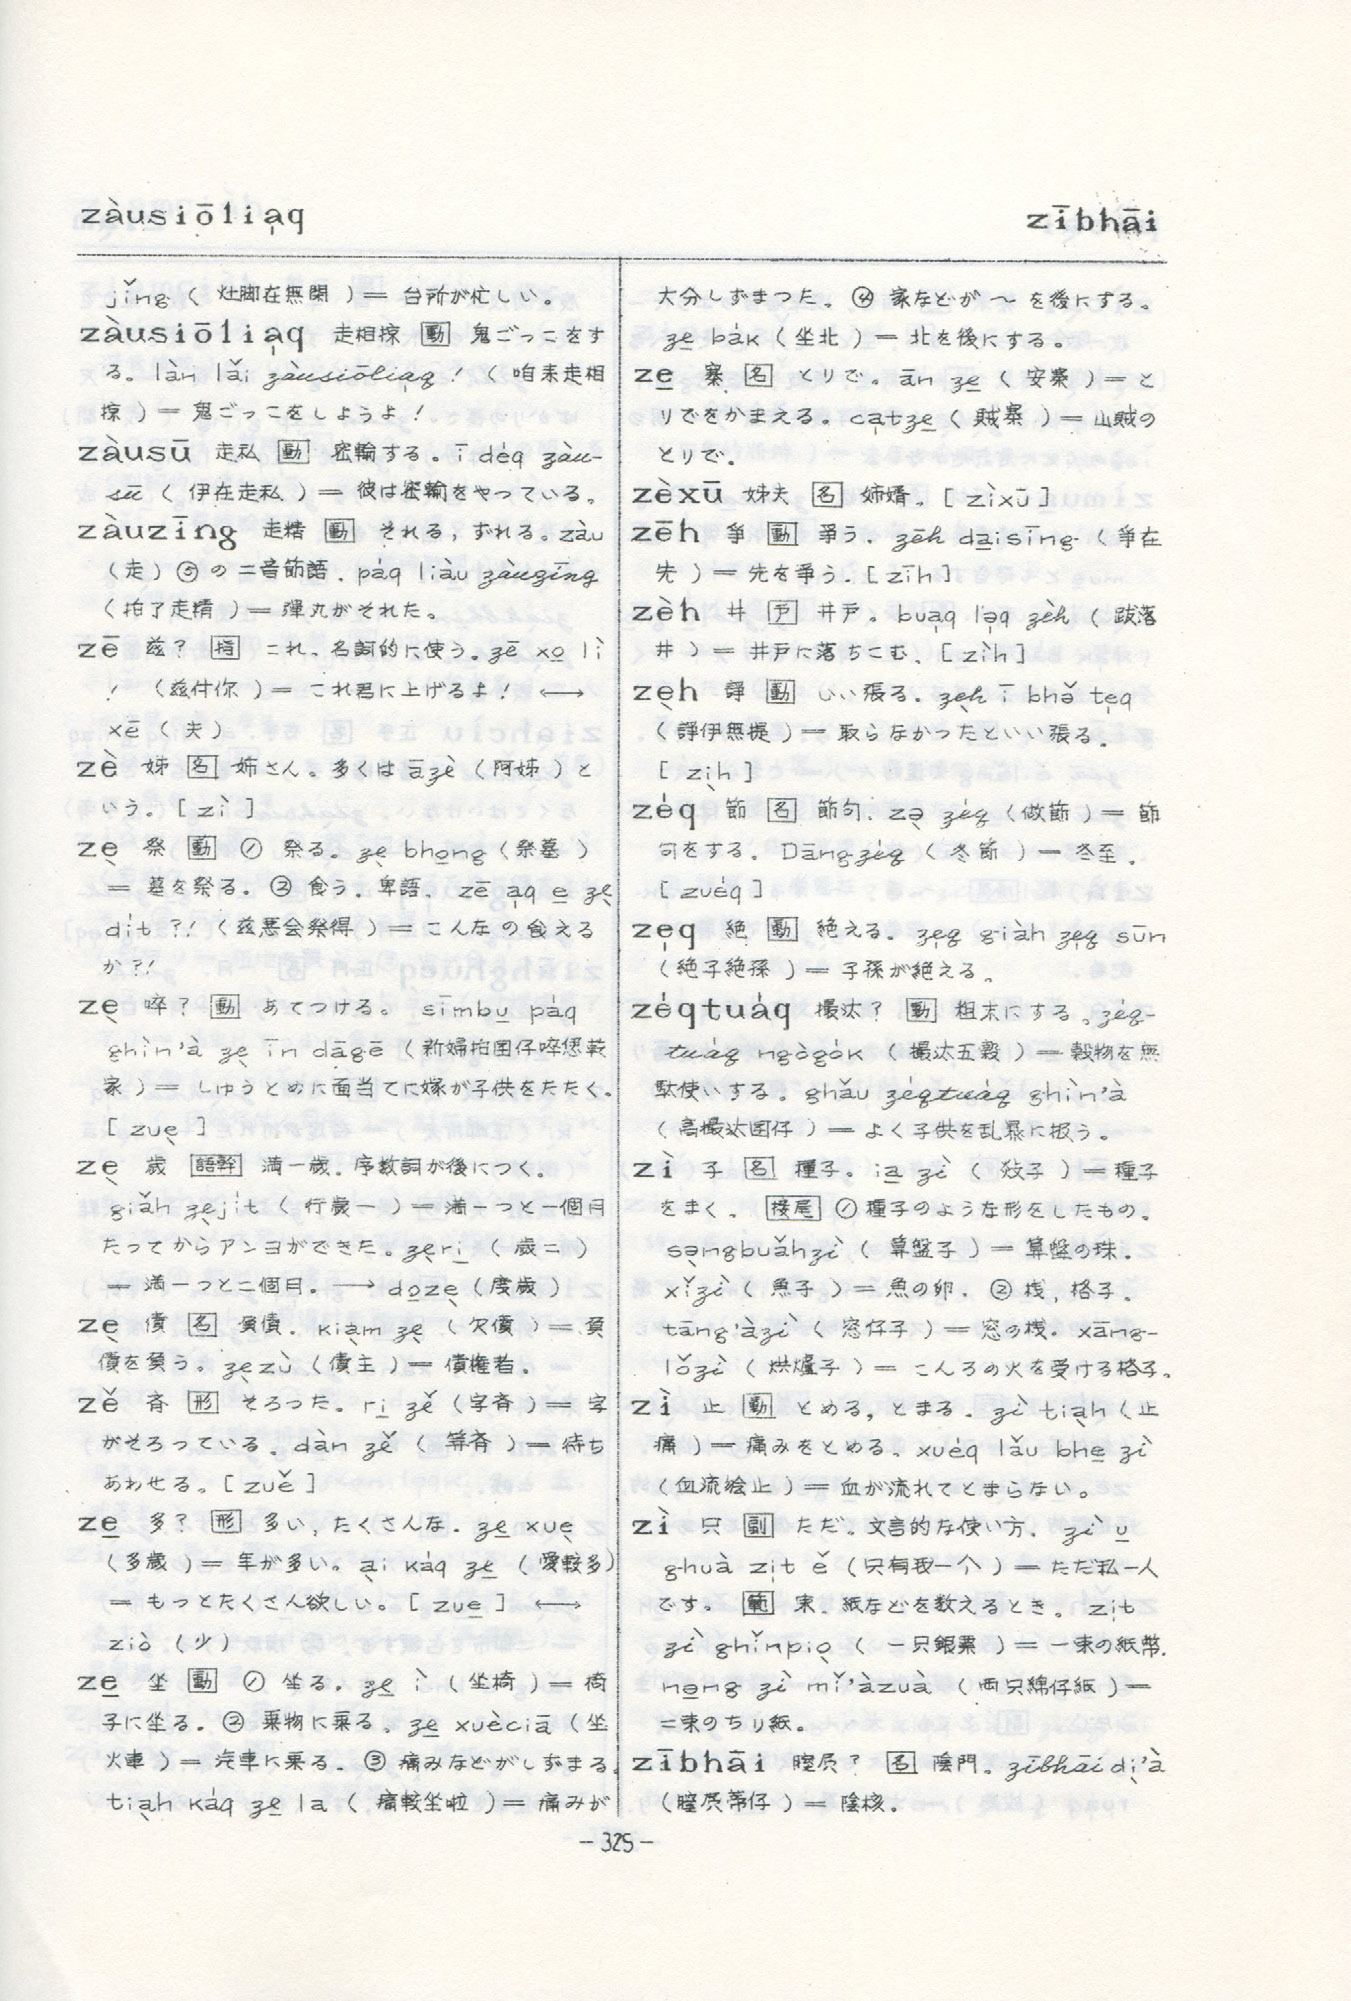 zàusiōli̩aq
zībhāi
jǐng ( 灶脚在無閑 )＝ 台所が忙しい。
zàusiōli̩aq 走相掠 [動] 鬼ごっこをす
る。làn lǎi zàusiōli̩aq! ( 咱来走相
掠 )＝ 鬼ごっこをしようよ!
zàusū 走私 [動] 密輸する。ī déq zàu-
sū ( 伊在走私 )＝ 彼は密輸をやっている。
zàuzīng 走精 [動] それる, ずれる。zàu
(走) ⑤の二音節語. páq liàu zàuzīng
(拍了走精 )＝ 弾丸がそれた。
zē 茲? [指] これ、名詞的に使う。zē xo̠ lì
! (茲付你 )＝ これ君に上げるよ! ⟷
xē ( 夫 )
zè 姊 [名] 姉さん。多くは āzè (阿姊 ) と
いう。[ zì ]
ze̖ 祭 [動] ① 祭る。ze̖ bho̠ng (祭墓 )
＝ 墓を祭る。② 食う。卑語. zē a̩q e̠ ze̖
di̍t ?! (茲悪会祭得 )＝ こんなの食える
か?!
ze̖ 啐? [動] あてつける。sīmbu̠ páq
ghìn'à ze̖ īn dāgē (新婦拍囝仔啐偲乾
家 )＝ しゅうとめに面当てに嫁が子供をたたく。
[ zue̖ ]
ze̖ 歳 [語幹] 満一歳. 序数詞が後につく.
giǎh ze̖ji̍t ( 行歳一 )＝満一つと一個月
たってからアンヨができた。ze̖ri̠ ( 歳二 )
＝ 満一つと二個月. ⟶ do̠ze̖ (度歳 )
ze̖ 債 [名] 負債. kia̖m ze̖ ( 欠債 )＝ 負
債を負う。ze̖zù (債主 )＝ 債権者.
zě 斉 [形] そろった。ri̠ zě (字斉 )＝ 字
がそろっている。dàn zě ( 等斉 )＝ 待ち
あわせる。[ zuě ]
ze̠ 多? [形] 多い, たくさんな. ze̠ xue̖
(多歳 )＝ 年が多い。a̖i káq ze̠ ( 愛較多)
＝ もっとたくさん欲しい。[ zue̠ ] ⟷
ziò ( 少 )
ze̠ 坐 [動] ① 坐る. ze̠ ì (坐椅 )＝ 椅
子に坐る. ② 乗物に乗る. ze̠ xuèciā (坐
火車 )＝ 汽車に乗る. ③ 痛みなどがしずまる.
tia̖h káq ze̠ la ( 痛較坐啦 )＝ 痛みが
大分しずまった。④ 家などが〜を後にする。
ze̠ bák (坐北 )＝ 北を後にする。
ze̠ 寨 [名] とりで。ān ze̠ ( 安寨 )＝と
りでをかまえる。ca̩tze̠ ( 賊寨 )＝山賊の
とりで.
zèxū 姊夫 [名] 姉婿. [ zìxū ]
zēh 争 [動] 争う. zēh da̠isīng ( 争在
先 )＝ 先を争う. [ zīh ]
zèh 井 [戸] 井戸。bua̩q lə̩q zèh ( 跋落
井 )＝ 井戸に落ちこむ. [ zìh ]
ze̖h 諍 [動] いい張る. ze̖h ī bhə̌ te̩q
(諍伊無提 )＝ 取らなかったといい張る.
[ zi̖h ]
zéq 節 [名] 節句. zə̖ zéq (做節 )＝ 節
句をする. Dāngzéq ( 冬節 )＝ 冬至.
[ zuéq ]
ze̩q 絶 [動] 絶える. ze̩q giàh ze̩q sūn
(絶子絶孫 )＝ 子孫が絶える.
zéqtuáq 撮汰? [動] 粗末にする。zéq-
tuáq ngògók (撮汰五穀 )＝ 穀物を無
駄使いする。ghǎu zéqtuáq ghìn'à
(高撮汰囝仔 )＝ よく子供を乱暴に扱う。
zì 子 [名] 種子. ia̠ zì ( 敥子 )＝種子
をまく。[接尾] ① 種子のような形をしたもの.
sə̖ngbuǎhzì ( 算盤子 )＝ 算盤の珠.
xǐzì ( 魚子 )＝魚の卵. ② 桟, 格子.
tāng'àzì ( 窓仔子 )＝ 窓の桟. xāng-
lǒzì ( 烘爐子 )＝ こんろの火を受ける格子.
zì 止 [動] とめる, とまる. zì tia̖h (止
痛 )＝ 痛みをとめる。xuéq lǎu bhe̠ zì
(血流絵止 )＝ 血が流れてとまらない。
zì 只 [副] ただ. 文言的な使い方. zì u̠
ghuà zi̩t ě (只有我一个 )＝ ただ私一人
です. [範] 束. 紙などを数えるとき. zi̩t
zì ghǐnpio̖ ( 一只銀票 )＝ 一束の紙幣.
nə̠ng zì mǐ'àzuà (両只綿仔紙 )＝
二束のちり紙.
zībhāi 膣屄? [名] 陰門. zībhāi di̖'à
(膣屄蒂仔 )＝ 陰核.
- 325 -